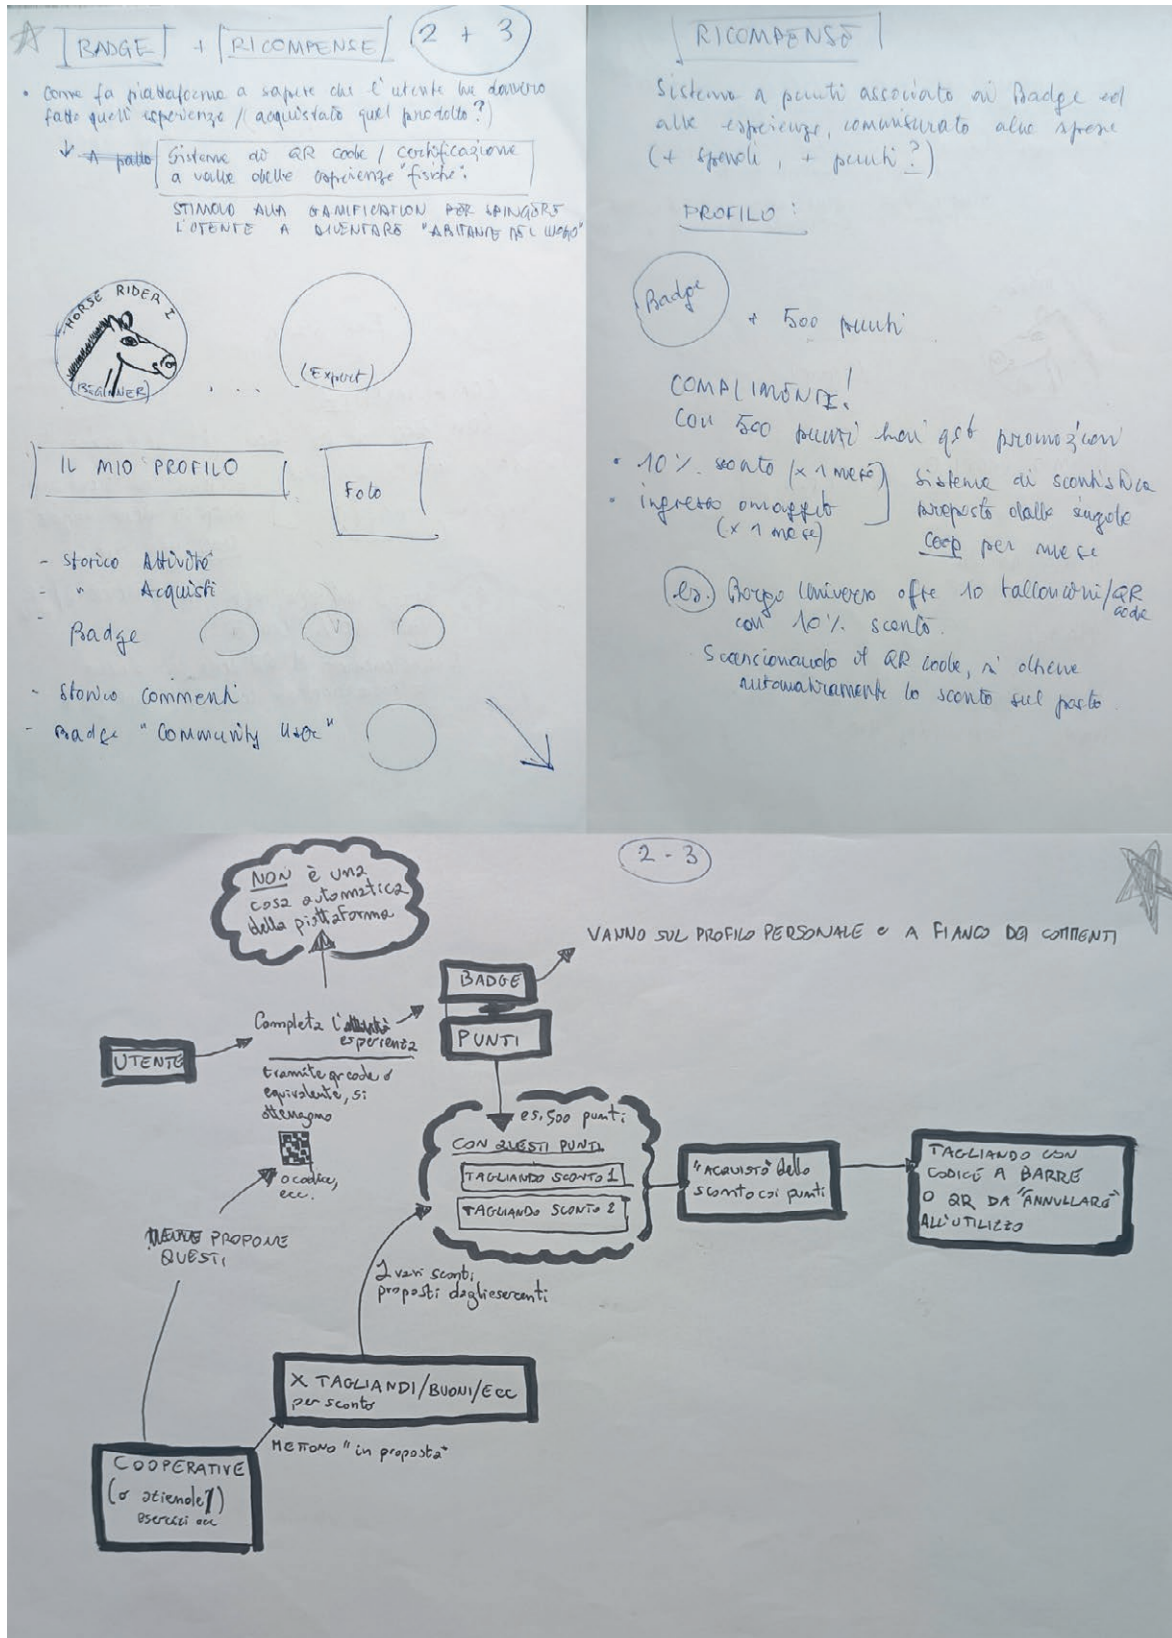 BADGE + RICOMPENSE 2 + 3
• Come fa piattaforma a sapere che l'utente ha davvero
fatto quell'esperienza // acquistato quel prodotto?)
Sistema di QR code / certificazione
a valle delle esperienze "fisiche".
STIMOLO ALLA GAMIFICATION PER SPINGERE
L'UTENTE A DIVENTARE "ABITANTE DEL LUOGO"
HORSE RIDER I
(BEGINNER)
. . . .
(Expert)
IL MIO PROFILO
Foto
- Storico Attività
- " Acquisti
- Badge
- Storico commenti
- Badge "Community User"
RICOMPENSE
Sistema a punti associato ai Badge ed
alle esperienze, commisurato alle spese
(+ spendi, + punti?)
PROFILO:
Badge
+ 500 punti
COMPLIMENTI!
Con 500 punti hai qst promozioni
• 10% sconto (x 1 mese)
• ingresso omaggio
(x 1 mese)
Sistema di scontistica
proposto dalle singole
coop per mese
es. Borgo Universo offre 10 talloncini/QR
code
con 10% sconto.
Scansionando il QR code, si ottiene
automaticamente lo sconto sul pasto.
2 - 3
NON è una
cosa automatica
della piattaforma
VANNO SUL PROFILO PERSONALE e A FIANCO DEI COMMENTI
BADGE
PUNTI
UTENTE
Completa l'
esperienza
tramite qr code o
equivalente, si
ottengono
o codice,
ecc.
es. 500 punti
CON QUESTI PUNTI
TAGLIANDO SCONTO 1
TAGLIANDO SCONTO 2
"ACQUISTO" dello
sconto coi punti
TAGLIANDO CON
CODICE A BARRE
O QR DA "ANNULLARE"
ALL'UTILIZZO
PROPONE
QUESTI
I vari sconti
proposti dagli esercenti
X TAGLIANDI/BUONI/ECC
per sconto
METTONO "in proposta"
COOPERATIVE
(o aziende?)
esercizi ecc